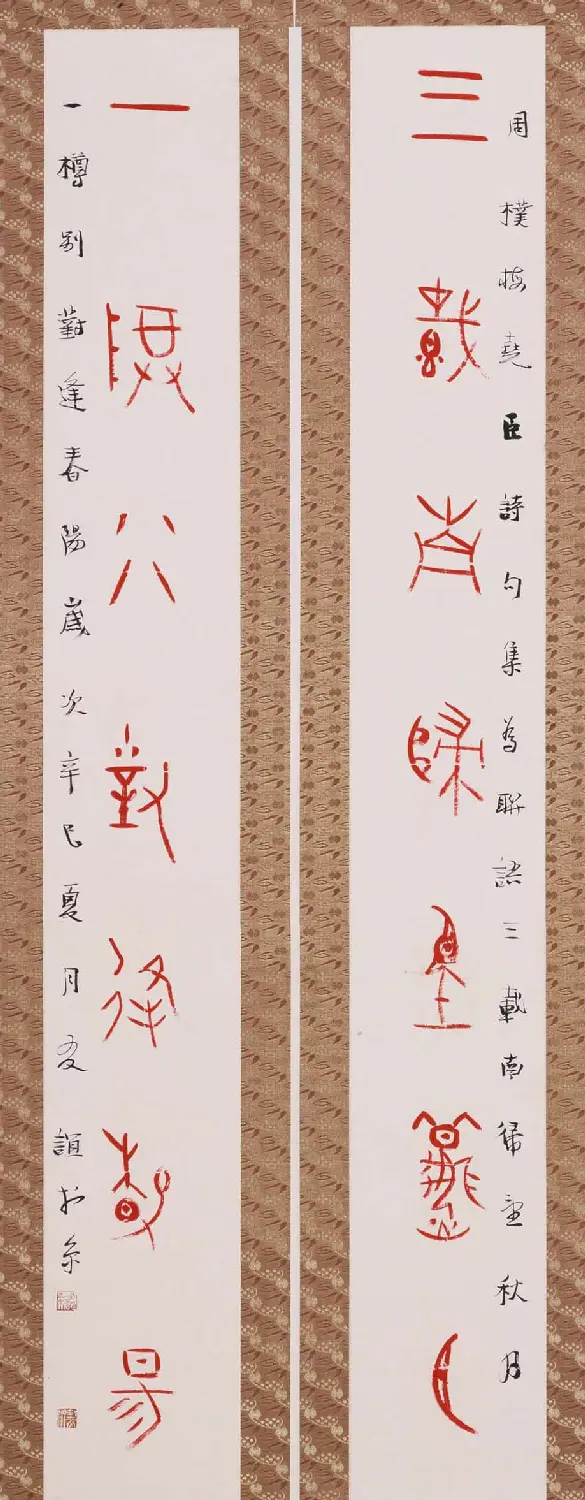 周樸梅堯臣詩句集為聯語三載南歸望秋月
三載南歸望秋月
一尊八對逢春昜
一樽別對逢春陽歲次辛巳夏月友誼於京